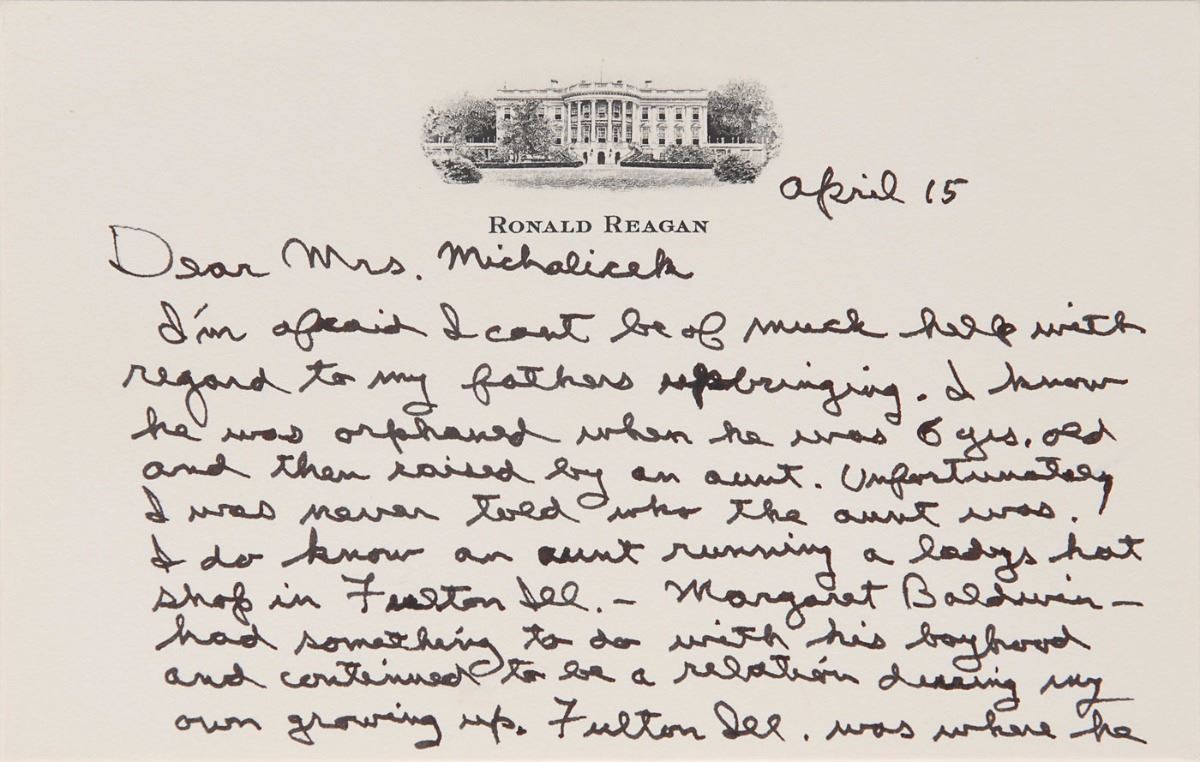 RONALD REAGAN
April 15
Dear Mrs. Michalicek
I'm afraid I cant be of much help with
regard to my fathers upbringing. I know
he was orphaned when he was 6 yrs. old
and then raised by an aunt. Unfortunately
I was never told who the aunt was.
I do know an aunt running a ladys hat
shop in Fulton Ill. – Margaret Baldwin –
had something to do with his boyhood
and continued to be a relation during my
own growing up. Fulton Ill. was where he